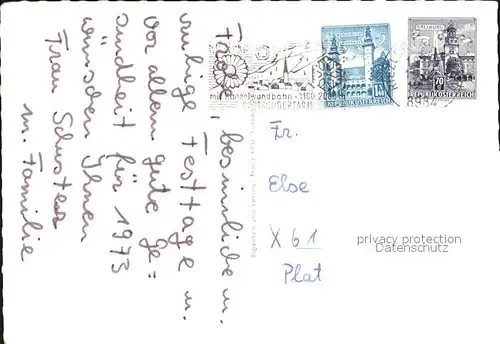 Frohe, besinnliche u.
ruhige Festtage u.
vor allem gute Ge=
sundheit für 1973
wünschen Ihnen
Frau Schuster
m. Familie
SALZBURG
70
REPUBLIK ÖSTERREICH
REPUBLIK ÖSTERREICH
mit Kanzelwandbahn-1100-2000
8984
Fr.
Else
X 61
Plat
privacy protection
Datenschutz